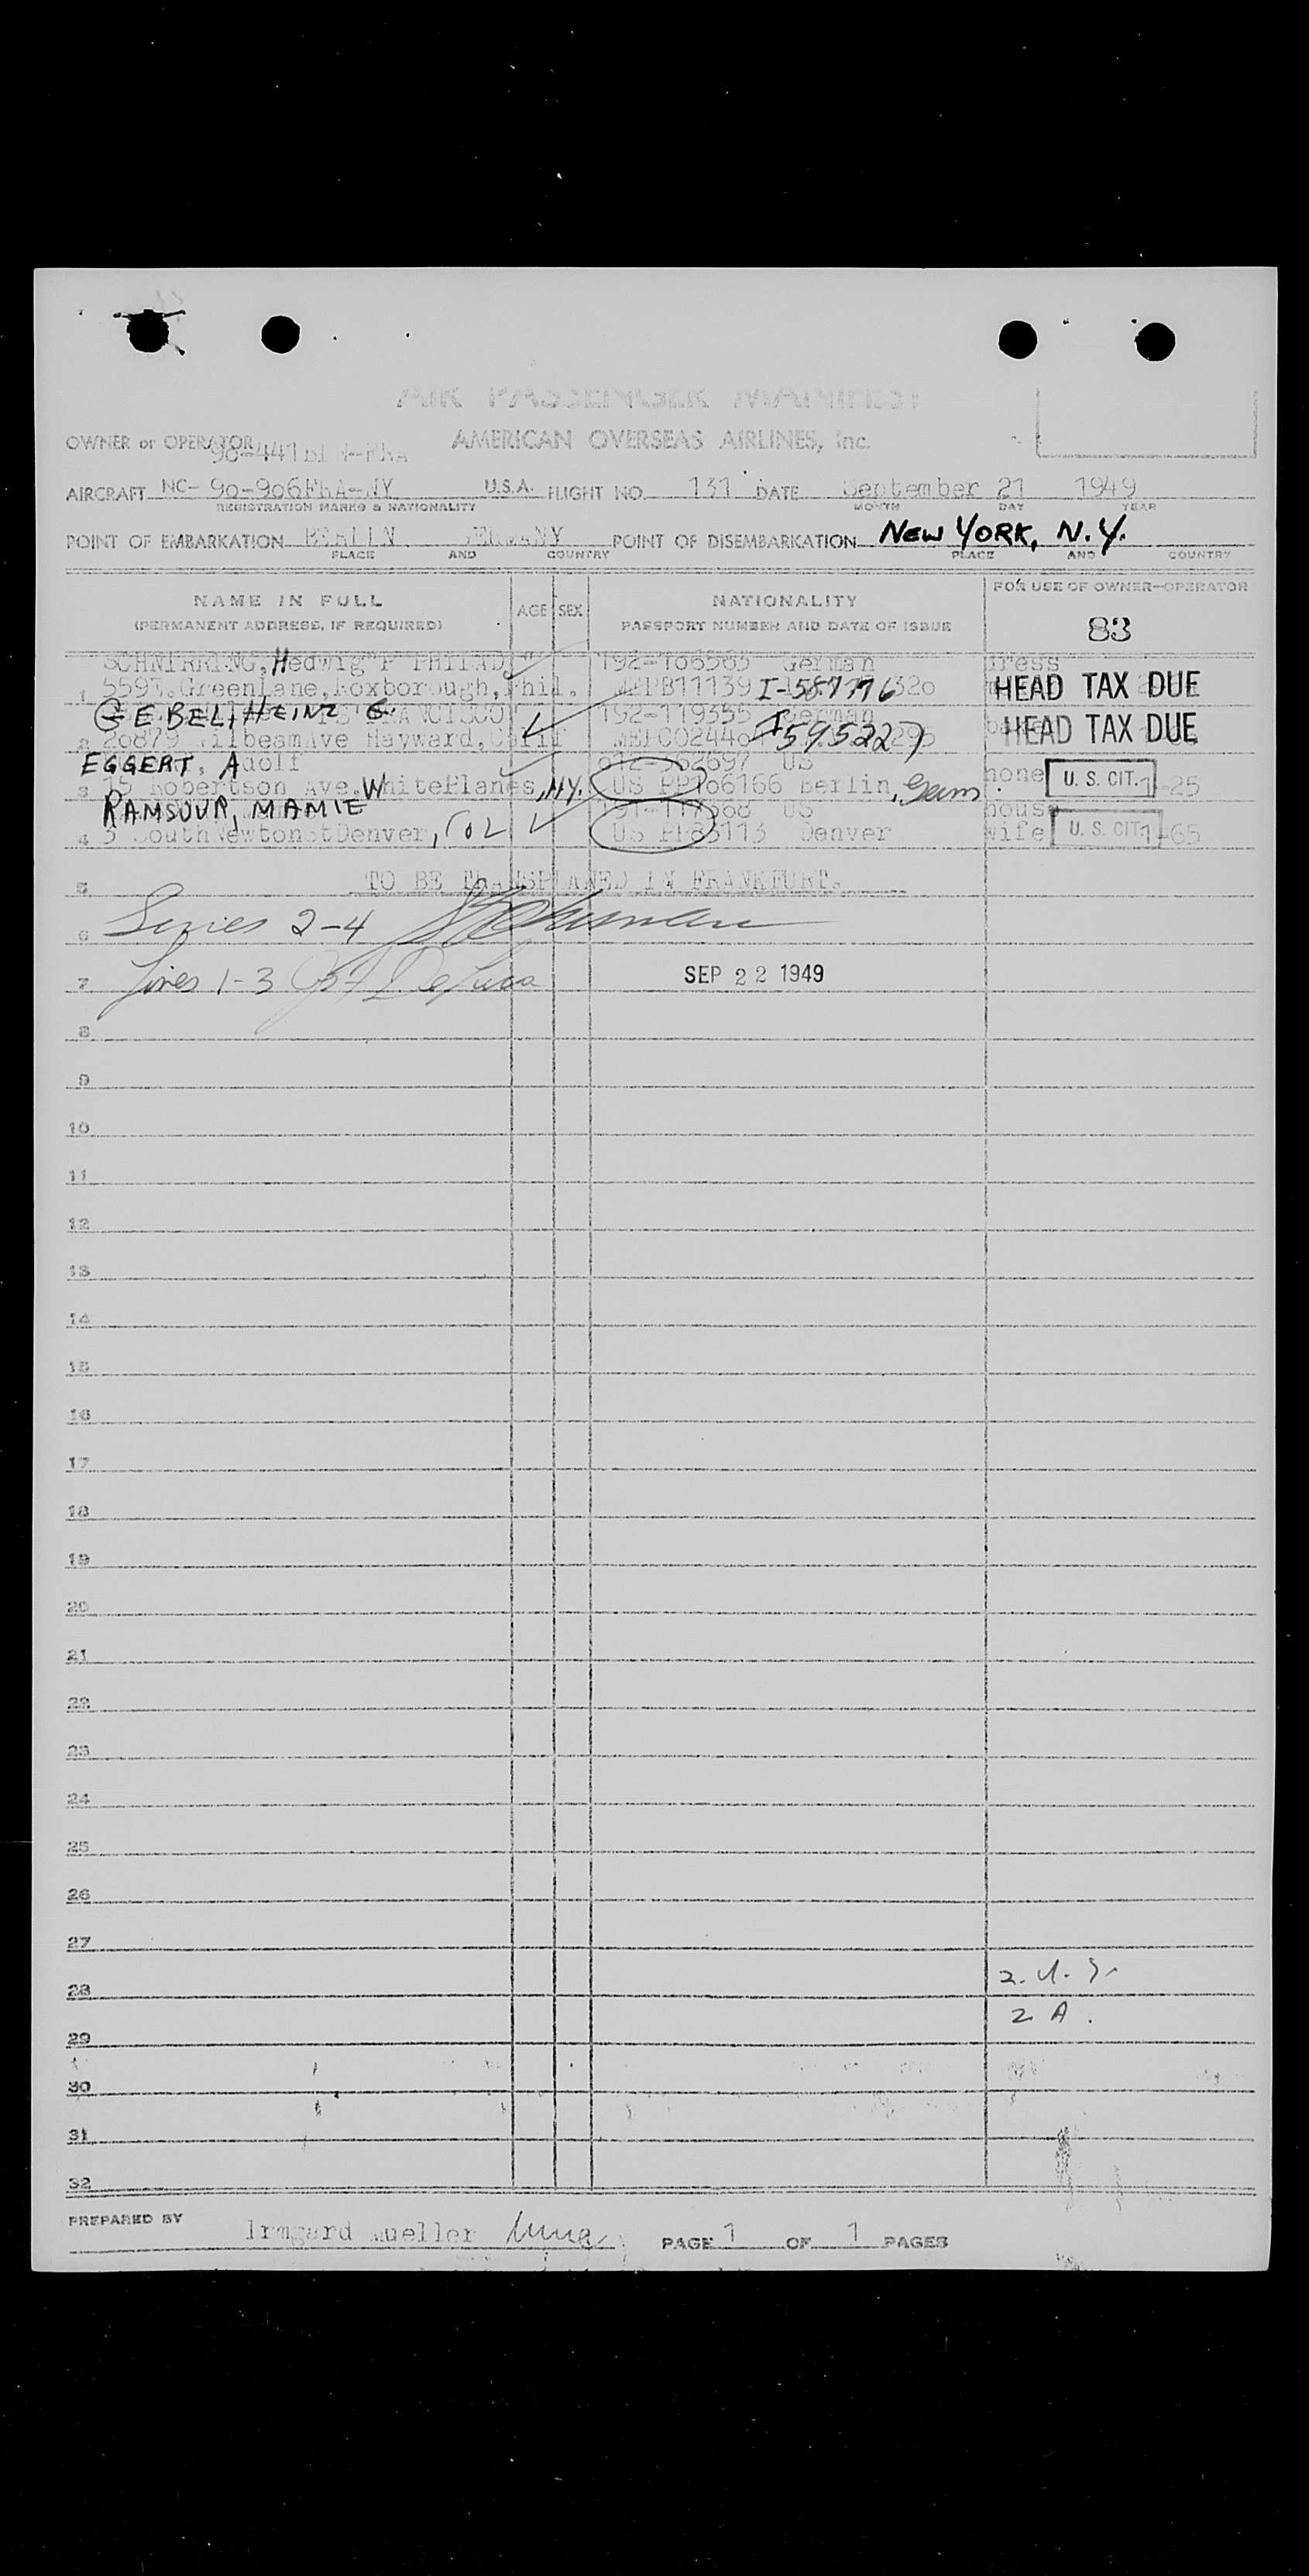 AIR PASSENGER MANIFEST
OWNER or OPERATOR 90-441BLN-FRA AMERICAN OVERSEAS AIRLINES, Inc.
AIRCRAFT NC- 90-906FRA-NY U.S.A. FLIGHT NO. 131 DATE September 21 1949
REGISTRATION MARKS & NATIONALITY MONTH DAY YEAR
POINT OF EMBARKATION BERLIN GERMANY POINT OF DISEMBARKATION NEW YORK, N.Y.
PLACE AND COUNTRY PLACE AND COUNTRY
NAME IN FULL AGE SEX NATIONALITY FOR USE OF OWNER-OPERATOR
(PERMANENT ADDRESS, IF REQUIRED) PASSPORT NUMBER AND DATE OF ISSUE 83
SCHNIRRING, Hedwig "P PHILAD" 192-106563 German
1 559E.GreenLane,Roxborough,Phil. I-587776 320 HEAD TAX DUE
GEBEL, HEINZ G. 192-119355 German
2 20879 WilbeamAve Hayward,Calif I 595227 HEAD TAX DUE
EGGERT, Adolf 012-362697 US
3 15 Robertson Ave,WhitePlanes,NY. US PP106166 Berlin, Germ. none U. S. CIT. 1-25
RAMSOUR, MAMIE 51-117568 US house
4 3 SouthNewtonStDenver, COL US PP83113 Denver wife U. S. CIT. 1-65
5 TO BE TRANSPLANED IN FRANKFURT.
6 Lines 2-4
7 Lines 1-3 SEP 22 1949
8
9
10
11
12
13
14
15
16
17
18
19
20
21
22
23
24
25
26
27
28 2. U. S.
29 2 A.
30
31
32
PREPARED BY Irmgard Mueller PAGE 1 OF 1 PAGES